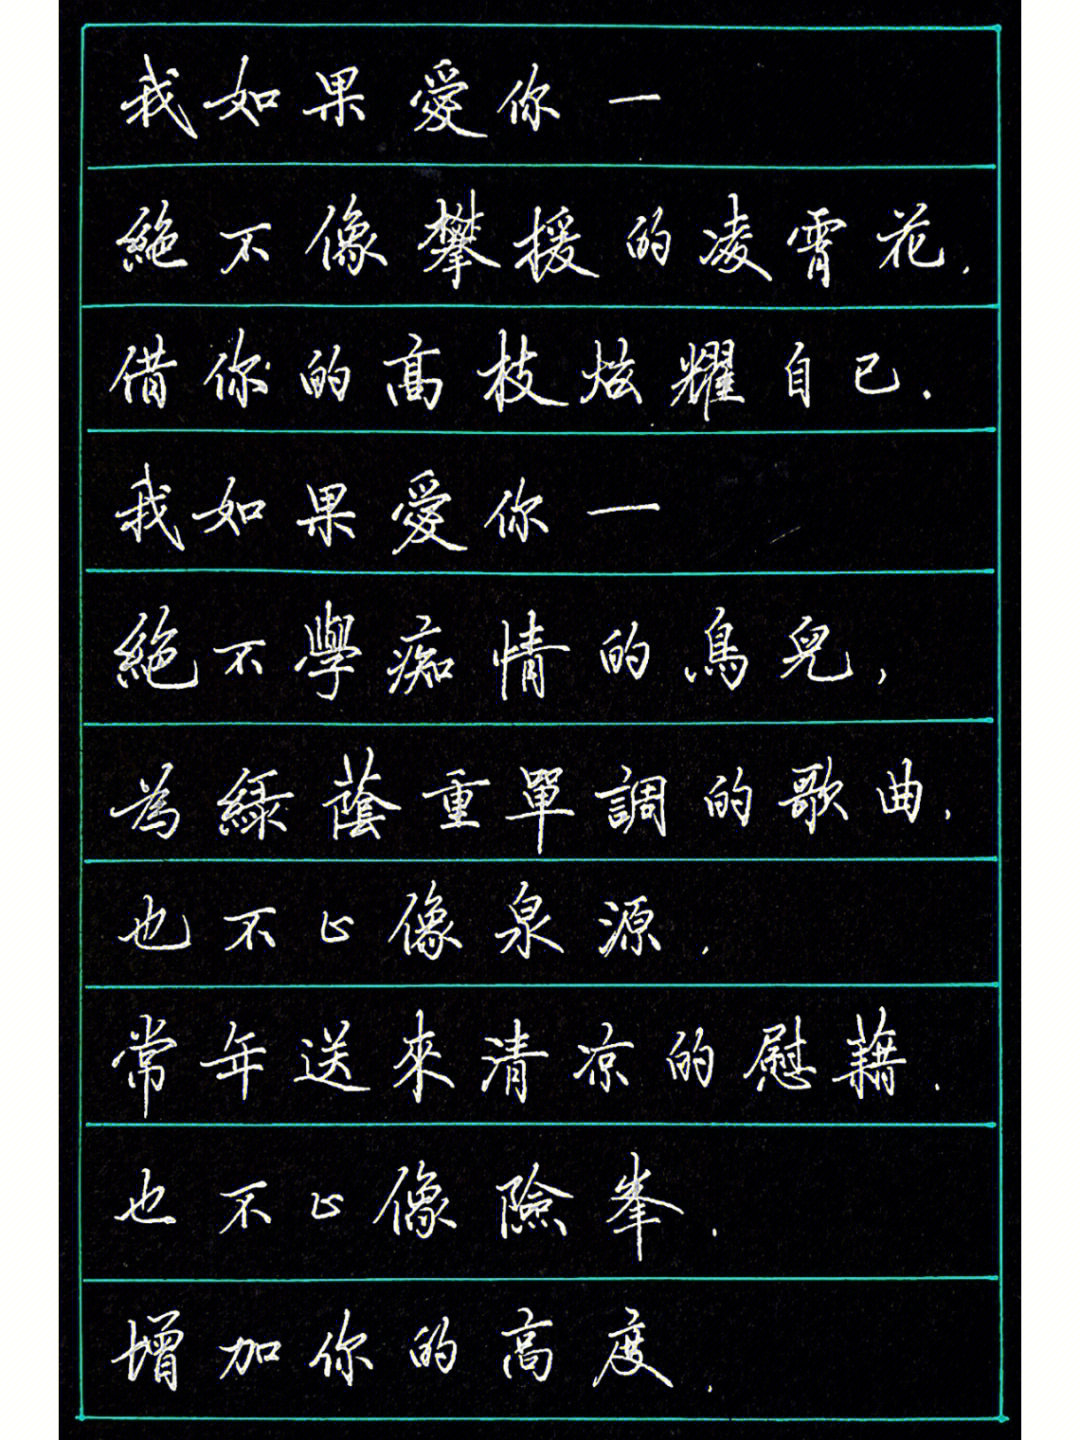 我如果愛你一
絕不像攀援的凌霄花，
借你的高枝炫耀自己．
我如果愛你一
絕不學痴情的鳥兒，
為綠蔭重單調的歌曲，
也不止像泉源，
常年送來清凉的慰藉．
也不止像險峯，
增加你的高度．